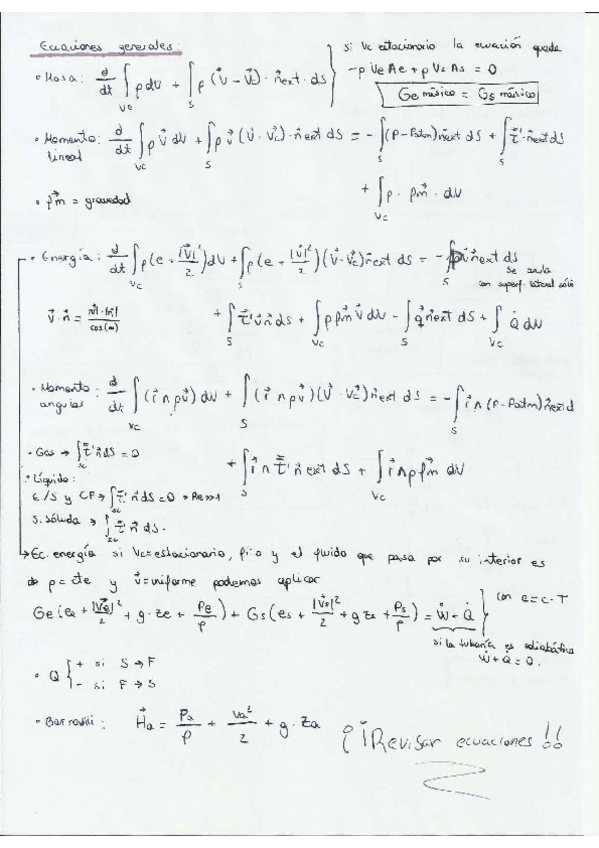 Ecuaciones generales
• Masa: d/dt ∫_VC ρ dV + ∫_S ρ (v⃗ - v⃗c) · n⃗ext · dS
si VC estacionario la ecuación queda
-ρ Ve Ae + ρ Vs As = 0
Ge másico = Gs másico
• Momento lineal: d/dt ∫_VC ρ v⃗ dV + ∫_S ρ v⃗ (v⃗ - v⃗c) · n⃗ext dS = - ∫_S (P - Patm) n⃗ext dS + ∫_S τ̿' · n⃗ext dS
+ ∫_VC ρ · f⃗m · dV
• f⃗m = gravedad
• Energía: d/dt ∫_VC ρ (e + |v⃗|²/2) dV + ∫_S ρ (e + |v⃗|²/2) (v⃗ - v⃗c) n⃗ext dS = - ∫_S p v⃗ n⃗ext dS
se anula
con superf. lateral sóli
v⃗ · n⃗ = |v⃗| · |n⃗| / cos(α)
+ ∫_S τ̿' v⃗ n⃗ dS + ∫_VC ρ f⃗m v⃗ dV - ∫_S q⃗ n⃗ext dS + ∫_VC Q̇ dV
• Momento angular: d/dt ∫_VC (r⃗ ∧ ρv⃗) dV + ∫_S (r⃗ ∧ ρv⃗) (v⃗ - v⃗c) n⃗ext dS = - ∫_S r⃗ ∧ (P - Patm) n⃗ext d
• Gas → ∫ τ̿' n⃗ dS = 0
+ ∫_S r⃗ ∧ τ̿' n⃗ext dS + ∫_VC r⃗ ∧ ρ f⃗m dV
• Líquido:
E/S y CF → ∫ τ̿' n⃗ dS = 0 → Re>>1
S. sólida → ∫ τ̿' n⃗ dS.
→ Ec. energía si VC=estacionario, fijo y el fluido que pasa por su interior es
de ρ = cte y v⃗=uniforme podemos aplicar
Ge (ee + |Ve|²/2 + g · ze + Pe/ρ) + Gs (es + |Vs|²/2 + g zs + Ps/ρ) = Ẇ + Q̇
con e = c · T
si la tubería es adiabática
Ẇ + Q̇ = 0.
• Q { + si S → F
- si F → S
• Bernoulli: H⃗a = Pa/ρ + va²/2 + g · za
¡¡Revisar ecuaciones!!